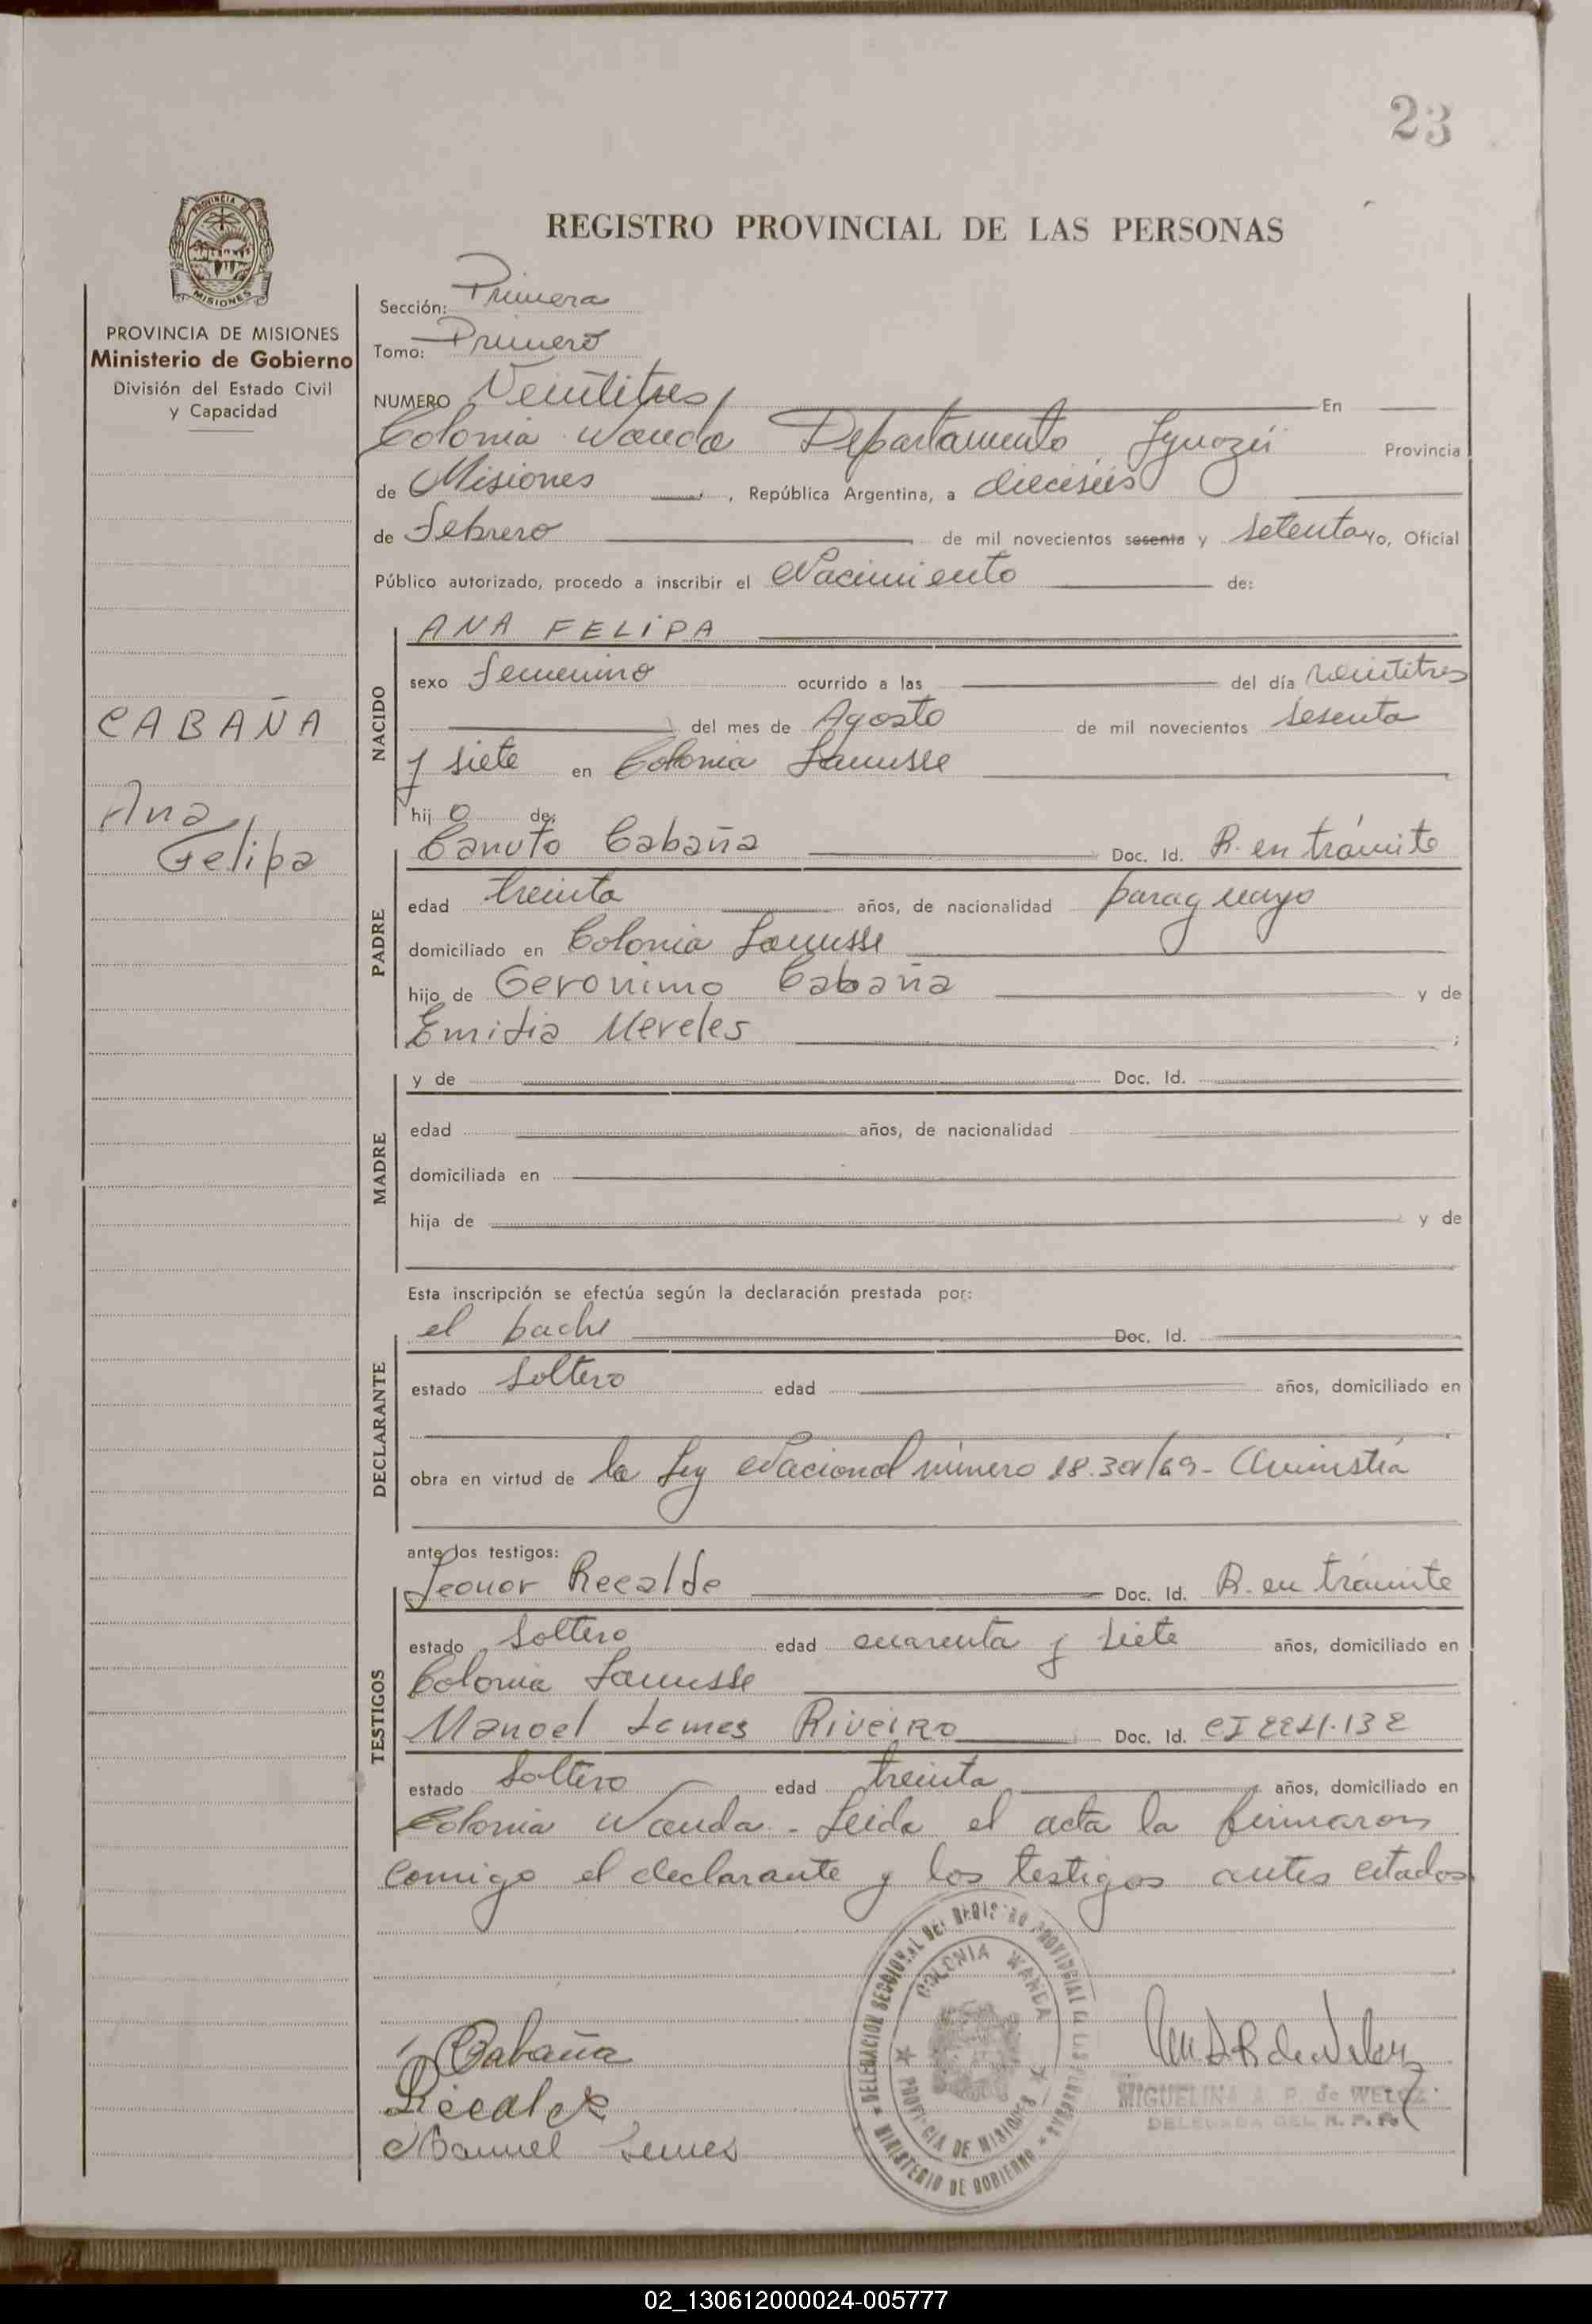 23
PROVINCIA DE
MISIONES
PROVINCIA DE MISIONES
Ministerio de Gobierno
División del Estado Civil
y Capacidad
CABAÑA
Ana
Felipa
REGISTRO PROVINCIAL DE LAS PERSONAS
Sección: Primera
Tomo: Primero
NUMERO Veintitres En
Colonia Wanda Departamento Iguazú Provincia
de Misiones , República Argentina, a dieciséis
de febrero de mil novecientos sesenta y setenta Yo, Oficial
Público autorizado, procedo a inscribir el Nacimiento de:
NACIDO
ANA FELIPA
sexo femenino ocurrido a las del día veintitres
del mes de Agosto de mil novecientos sesenta
y siete en Colonia Lanusse
hij a de:
PADRE
Canuto Cabaña Doc. Id. R. en trámite
edad treinta años, de nacionalidad paraguayo
domiciliado en Colonia Lanusse
hijo de Geronimo Cabaña y de
Emidia Mereles ;
MADRE
y de Doc. Id.
edad años, de nacionalidad
domiciliada en
hija de y de
Esta inscripción se efectúa según la declaración prestada por:
DECLARANTE
el padre Doc. Id.
estado Soltero edad años, domiciliado en
obra en virtud de la Ley Nacional número 18.301/69- Aministía
ante los testigos:
TESTIGOS
Leonor Recalde Doc. Id. R. en trámite
estado Soltero edad cuarenta y siete años, domiciliado en
Colonia Lanusse
Manoel Lemes Riveiro Doc. Id. CI 224.132
estado Soltero edad treinta años, domiciliado en
Colonia Wanda - Leida el acta la firmaron
comigo el declarante y los testigos antes citados
Cabaña
Recalde
Manuel Lemes
DELEGACION SECCIONAL DEL REGISTRO PROVINCIAL DE LAS PERSONAS
MINISTERIO DE GOBIERNO
COLONIA WANDA
PROVINCIA DE MISIONES
MIGUELINA A. R. de WELOZ
DELEGADA DEL R. P. P.
02_130612000024-005777